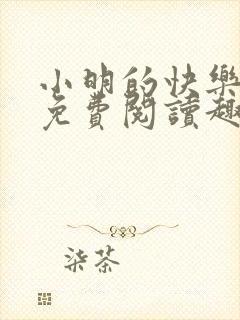 小明的快樂
免費閱讀趣
柒茶